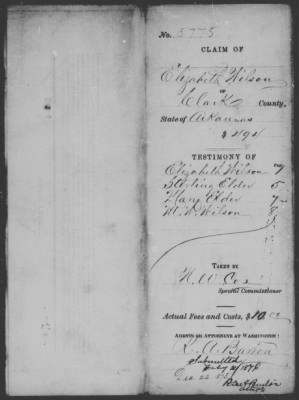 No. 5775
CLAIM OF
Elizabeth Wilson
OF
Clark County,
State of Arkansas
$ 494
TESTIMONY OF
Elizabeth Wilson 7
Sterling Elder 5
Mary Elder 7
M. W. Wilson 8
TAKEN BY
K. W. Cox
Special Commissioner
Actual Fees and Costs, $10.00
AGENTS OR ATTORNEYS AT WASHINGTON:
Submitted